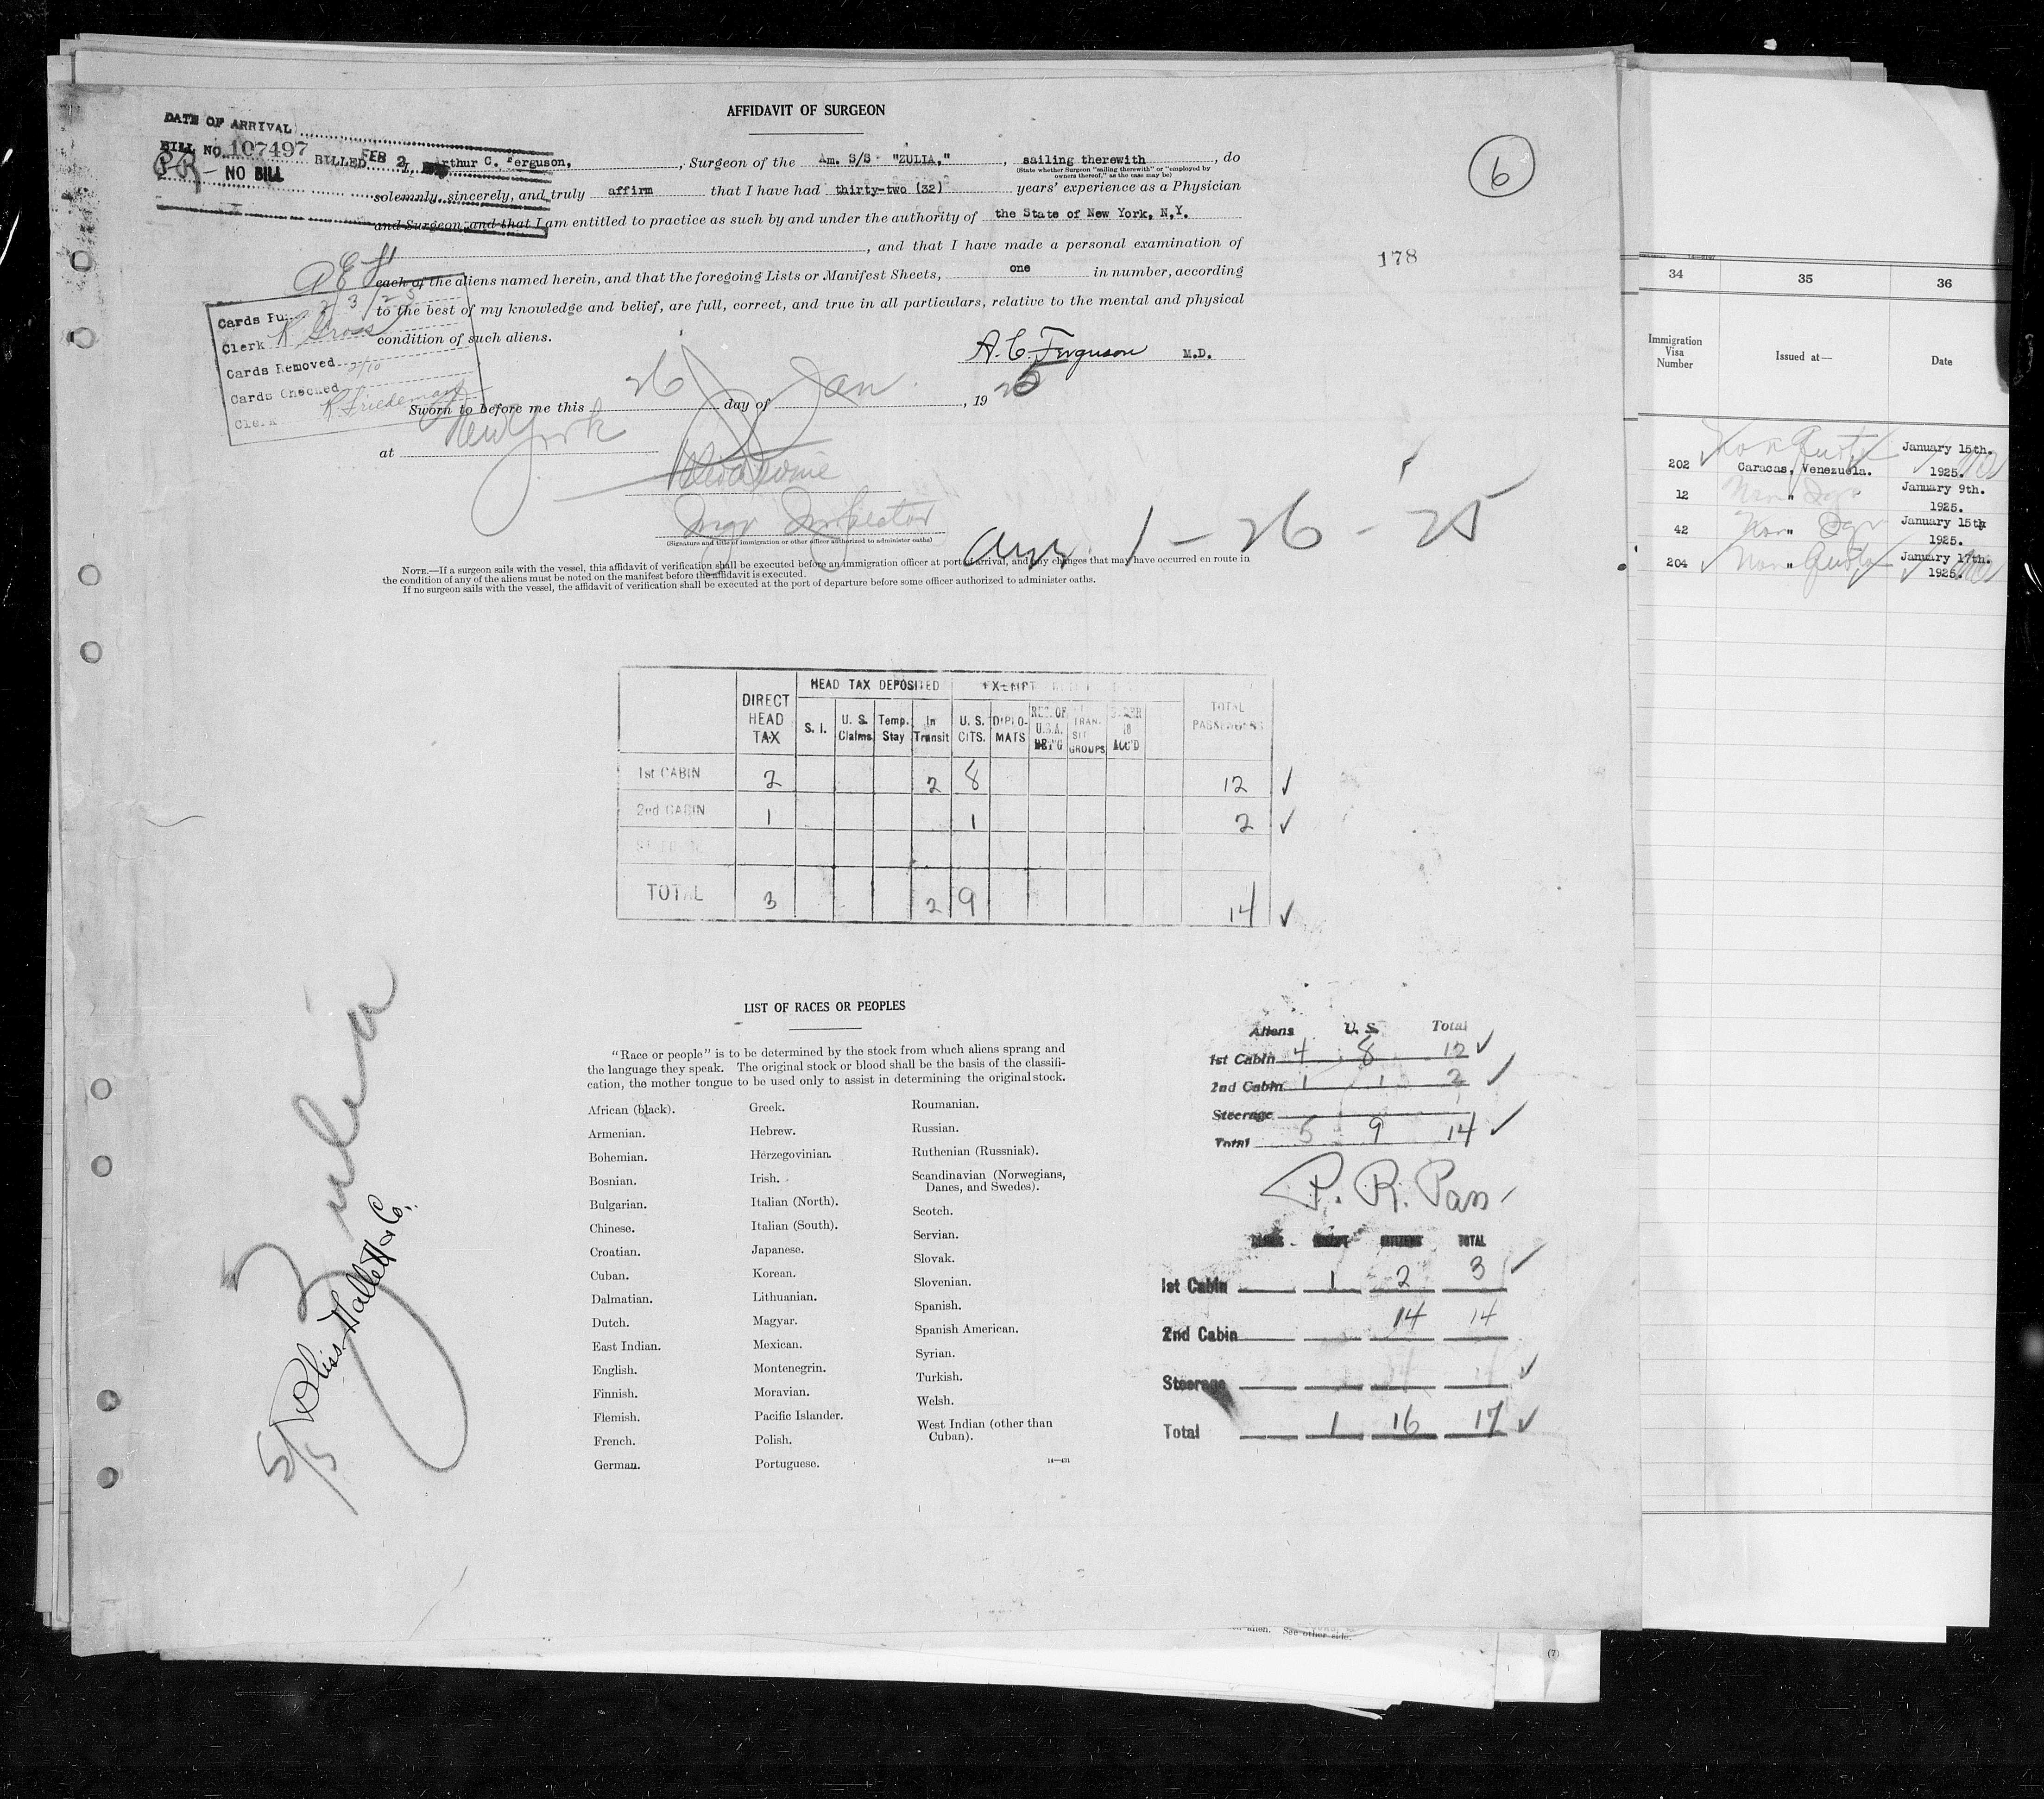 AFFIDAVIT OF SURGEON
DATE OF ARRIVAL
BILL NO. 107497 BILLED FEB 2
P.R. — NO BILL
I, Arthur C. Ferguson, , Surgeon of the Am. S/S "ZULIA," , sailing therewith , do
(State whether Surgeon "sailing therewith" or "employed by
owners thereof," as the case may be)
solemnly, sincerely, and truly affirm that I have had thirty-two (32) years' experience as a Physician
and Surgeon and that I am entitled to practice as such by and under the authority of the State of New York, N.Y.
, and that I have made a personal examination of
each of the aliens named herein, and that the foregoing Lists or Manifest Sheets, one in number, according
to the best of my knowledge and belief, are full, correct, and true in all particulars, relative to the mental and physical
condition of such aliens.
A. C. Ferguson M.D.
Sworn to before me this 26 day of Jan. , 1925
at New York
Inspector
(Signature and title of immigration or other officer authorized to administer oaths)
NOTE.—If a surgeon sails with the vessel, this affidavit of verification shall be executed before an immigration officer at port of arrival, and any changes that may have occurred en route in
the condition of any of the aliens must be noted on the manifest before the affidavit is executed.
If no surgeon sails with the vessel, the affidavit of verification shall be executed at the port of departure before some officer authorized to administer oaths.
Arr. 1-26-25
6
178
Cards Pu
Clerk K Gross
Cards Removed 2/10
Cards Checked
Clerk R. Friedeman
HEAD TAX DEPOSITED EXEMPT
DIRECT HEAD TAX S. I. U. S. Claims Temp. Stay In Transit U. S. CITS. DIPLOMATS RES. OF U.S.A. RET'G TRANSIT GROUPS UNDER 16 ACC'D TOTAL PASSENGERS
1st CABIN 2 2 8 12
2nd CABIN 1 1 2
TOTAL 3 2 9 14
Zulia
Bliss Hallett & Co.
LIST OF RACES OR PEOPLES
"Race or people" is to be determined by the stock from which aliens sprang and
the language they speak. The original stock or blood shall be the basis of the classifi-
cation, the mother tongue to be used only to assist in determining the original stock.
African (black).
Armenian.
Bohemian.
Bosnian.
Bulgarian.
Chinese.
Croatian.
Cuban.
Dalmatian.
Dutch.
East Indian.
English.
Finnish.
Flemish.
French.
German.
Greek.
Hebrew.
Herzegovinian.
Irish.
Italian (North).
Italian (South).
Japanese.
Korean.
Lithuanian.
Magyar.
Mexican.
Montenegrin.
Moravian.
Pacific Islander.
Polish.
Portuguese.
Roumanian.
Russian.
Ruthenian (Russniak).
Scandinavian (Norwegians,
Danes, and Swedes).
Scotch.
Servian.
Slovak.
Slovenian.
Spanish.
Spanish American.
Syrian.
Turkish.
Welsh.
West Indian (other than
Cuban).
14—431
Aliens U. S. Total
1st Cabin 4 8 12
2nd Cabin 1 1 2
Steerage
Total 5 9 14
P. R. Pass
TOTAL
1st Cabin 1 2 3
2nd Cabin 14 14
Steerage
Total 1 16 17
34 35 36
Immigration
Visa
Number
Issued at—
Date
202 Caracas, Venezuela. January 15th. 1925.
12 " January 9th. 1925.
42 " January 15th 1925.
204 " January 17th. 1925.
alien. See other side.
(7)